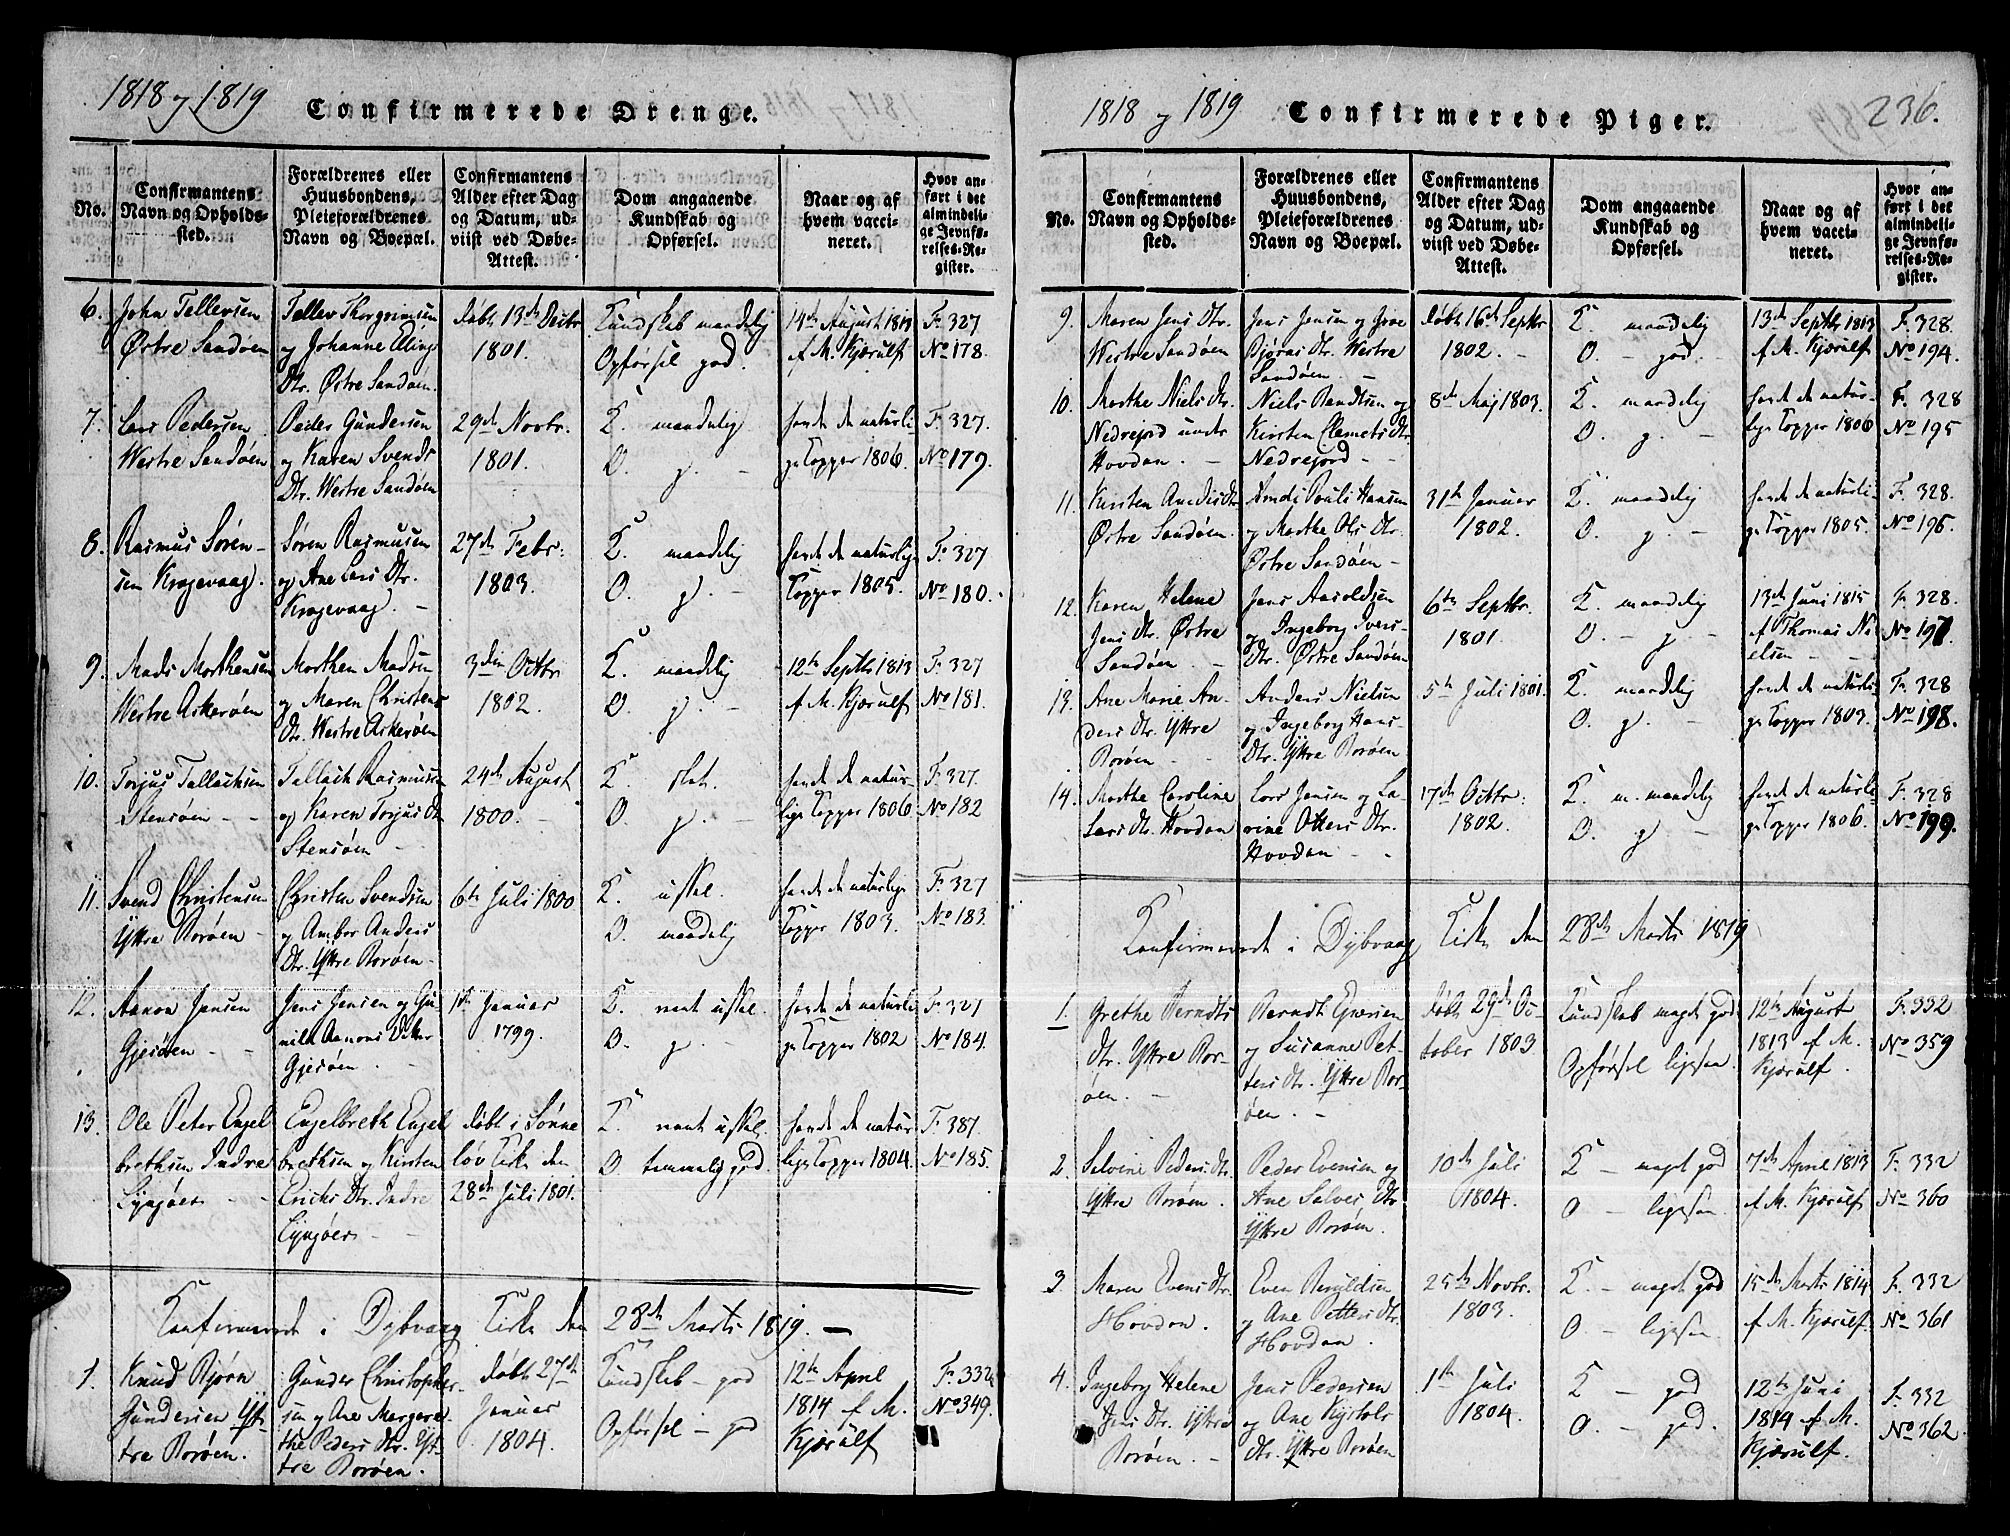 1818 og 1819 Confirmerede Drenge.
No.
Confirmantens
Navn og Opholds-
sted.
Forældrenes eller
Huusbondens,
Pleieforældrenes
Navn og Boepæl.
Confirmantens
Alder efter Dag
og Datum, ud-
viist ved Døbe-
Attest.
Dom angaaende
Kundskab og
Opførsel.
Naar og af
hvem vacci-
neret.
Hvor an-
ført i det
almindeli-
ge Jevnfø-
relses-Re-
gister.
6. John Tellevsen
Østre Sandøen
Tellev Thorgrimsen
og Johanne Elling
Dtr. Østre Sandøen.
døbt 13de Decbr
1801.
Kundskab maadelig
Opførsel god.
14de August 1813
af M. Kjærulf
F. 327
No 178.
7. Lars Pedersen
Westre Sandøen
Peder Gundersen
og Karen Svends
Dtr. Westre Sandøen
29de Novbr.
1801.
K. maadelig
O. g. -
havde de naturli-
ge Kopper 1806.
F. 327.
No 179.
8. Rasmus Søren-
sen Krogevaag.
Søren Rasmusen
og Ane Lars Dtr.
Krogevaag. -
27de Febr:
1803.
K. maadelig
O. g. -
havde de naturlige
Kopper 1805.
F. 327
No 180.
9. Mads Morthensen
Westre Askerøen
Morthen Madsen
og Maren Christens
Dtr. Westre Askerøen
3die Octbr
1802.
K. maadelig
O. g. -
12te Septbr 1813
af M. Kjærulf
F. 327
No 181.
10. Torjus Tellachsen
Stensøen - -
Tellach Rasmusen
og Karen Torjus Dtr
Stensøen -
24de August
1800. -
K. slet.
O. g. -
havde de natur-
lige Kopper 1806
F. 327.
No 182
11. Svend Christensen
Yttre Borøen -
Christen Svendsen
og Amber Anders
Dtr. Yttre Borøen -
6te Juli 1800
K. ussel.
O. maadelig
havde de naturlige
Kopper 1803.
F. 327
No 183.
12. Aanon Jensen
Gjesøen - -
Jens Jensen og Gu-
nild Aanons Datter
Gjesøen. -
1ste Januar
1799.
K. meet ussel.
O. g. -
havde de naturli-
ge Kopper 1802
F. 327
No 184.
13. Ole Peter Engel
brethsen Indre
Lyngøer - -
Engelbreth Engel
brethsen og Kirsten
Erichs Dtr. Indre
Lyngøer -
døbt i Sønne
løv Kirke den
28de Juli 1801.
K. meet ussel.
O. temmelig god.
havde de natur
lige Kopper 1804.
F. 387.
No 185.
Konfirmeret i Dybvaag Kirke den 28de Marts 1819. -
1. Knud Bjørn
Gundersen Yt-
tre Borøen.
Gunder Christopher-
sen og Ane Margre-
the Peders Dtr. Yt-
tre Borøen.
døbt 27de
Januar
1804.
Kundskab - god
Opførsel - god
12te April
1814 af M.
Kjærulf
F. 332
No 349.
1818 og 1819 Confirmerede Piger. 236.
No.
Confirmantens
Navn og Opholds-
sted.
Forældrenes eller
Huusbondens,
Pleieforældrenes
Navn og Boepæl.
Confirmantens
Alder efter Dag
og Datum, ud-
viist ved Døbe-
Attest.
Dom angaaende
Kundskab og
Opførsel.
Naar og af
hvem vacci-
neret.
Hvor an-
ført i det
almindeli-
ge Jevnfø-
relses-Re-
gister.
9. Maren Jens Dtr.
Westre Sandøen
Jens Jensen og Groe
Bjørns Dtr. Westre
Sandøen. -
døbt 16de Septbr
1802. -
K. maadelig
O. - god.
13de Septbr 1813
af M. Kjærulf
F. 328.
No 194.
10. Marthe Niels Dtr.
Nedrejord under
Hovdan. -
Niels Berntsen og
Kirsten Clemets Dtr.
Nedrejord - -
8de Maj 1803.
K. maadelig
O. g. -
havde de natur-
lige Kopper 1806
F. 328
No 195
11. Kirsten Anders Dtr
Østre Sandøen.
Anders Pouls Hansen
og Marthe Ols Dtr.
Østre Sandøen -
31te Januar
1802.
K. maadelig
O. g. -
havde de naturli-
ge Kopper 1805.
F. 328.
No 196.
12. Karen Helene
Jens Dtr. Østre
Sandøen -
Jens Aaroldsen
og Ingeborg Ivers-
Dtr. Østre Sandøen
6te Septbr.
1801.
K. maadelig
O. - g -
13de Juni 1815
af Thomas Ni-
elsen - -
F. 328.
No 197.
13. Ane Marie An-
ders Dtr. Yttre
Borøen - -
Anders Nielsen
og Ingeborg Hans-
Dtr. Yttre Borøen
5te Juli 1801.
K. maadelig
O. g. -
havde de naturli-
ge Kopper 1803.
F. 328
No 198.
14. Marthe Caroline
Lars Dtr. Hovdan
Lars Jensen og La-
vine Otters Dtr.
Hovdan - -
17de Octbr:
1802.
K. m. maadelig
O. g. -
havde de naturli-
ge Kopper 1806.
F. 328
No 199.
Konfirmeret i Dybvaag Kirke den 28de Marts 1819
1. Grethe Berndts
Dtr. Yttre Bor-
øen. -
Berndt Evensen
og Susanne Pet-
ters Dtr. Yttre Bor-
øen. -
døbt 29de Oc-
tober 1803.
Kundskab meget god
Opførsel ligesaa.
12te August
1813 af M.
Kjærulf.
F. 332
No 359
2. Selvine Peders Dtr.
Yttre Borøen.
Peder Evensen og
Ane Salves Dtr
Yttre Borøen.
10de Juli
1804.
K - meget god
O - ligesaa.
7de April 1813
af M. Kjærulf
F. 332
No 360
3. Maren Evens Dtr.
Hovdan.
Even Beruldsen
og Ane Petters Dtr.
Hovdan.
25de Novbr.
1803.
K - meget god
O. - ligesaa
15de Marts 1814
af M. Kjærulf.
F. 332
No 361
4. Ingeborg Helene
Jens Dtr. Yttre
Borøen. -
Jens Pedersen
og Ane Kjstols
Dtr. Yttre Borøen
1ste Juli
1804.
K - god
O. - god.
12te Juni
1814 af M.
Kjærulf.
F. 332
No 362.